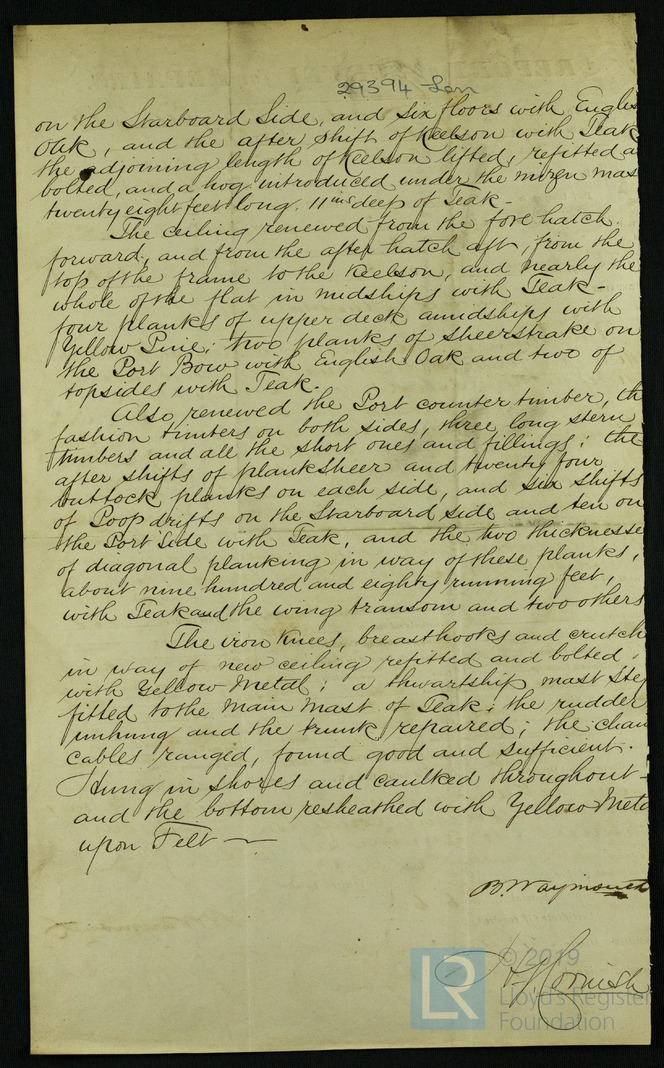 29394 Lon
on the Starboard Side, and six floors with Englis
Oak, and the after shift of Keelson with Teak
the adjoining length of Keelson lifted, refitted a
bolted, and a hog introduced under the mizen mas
twenty eight feet long. 11 ins deep of Teak -
The ceiling renewed from the fore hatch
forward, and from the after hatch aft, from the
top of the frame to the Keelson, and nearly the
whole of the flat in midships with Teak -
four planks of upper deck amidships with
Yellow Pine; two planks of sheerstrake on
the Port Bow with English Oak and two of
topsides with Teak.
Also renewed the Port counter timber, th
fashion timbers on both sides, three long stern
timbers and all the short ones and fillings; the
after shifts of planksheer and twenty four
buttock planks on each side, and six shifts
of Poop drifts on the Starboard side and ten on
the Port Side with Teak, and the two thicknesse
of diagonal planking in way of these planks,
about nine hundred and eighty running feet,
with Teak and the wing transom and two others
The iron Knees, breasthooks and crutch
in way of new ceiling refitted and bolted
with Yellow Metal; a thwartship mast ste
fitted to the main mast of Teak; the rudder
unhung and the trunk repaired; the chain
cables ranged, found good and sufficient.
Hung in shores and caulked throughout -
and the bottom resheathed with Yellow Meta
upon Felt —
B. Waymouth
Cornish
LR
© 2019
Lloyd's Register
Foundation